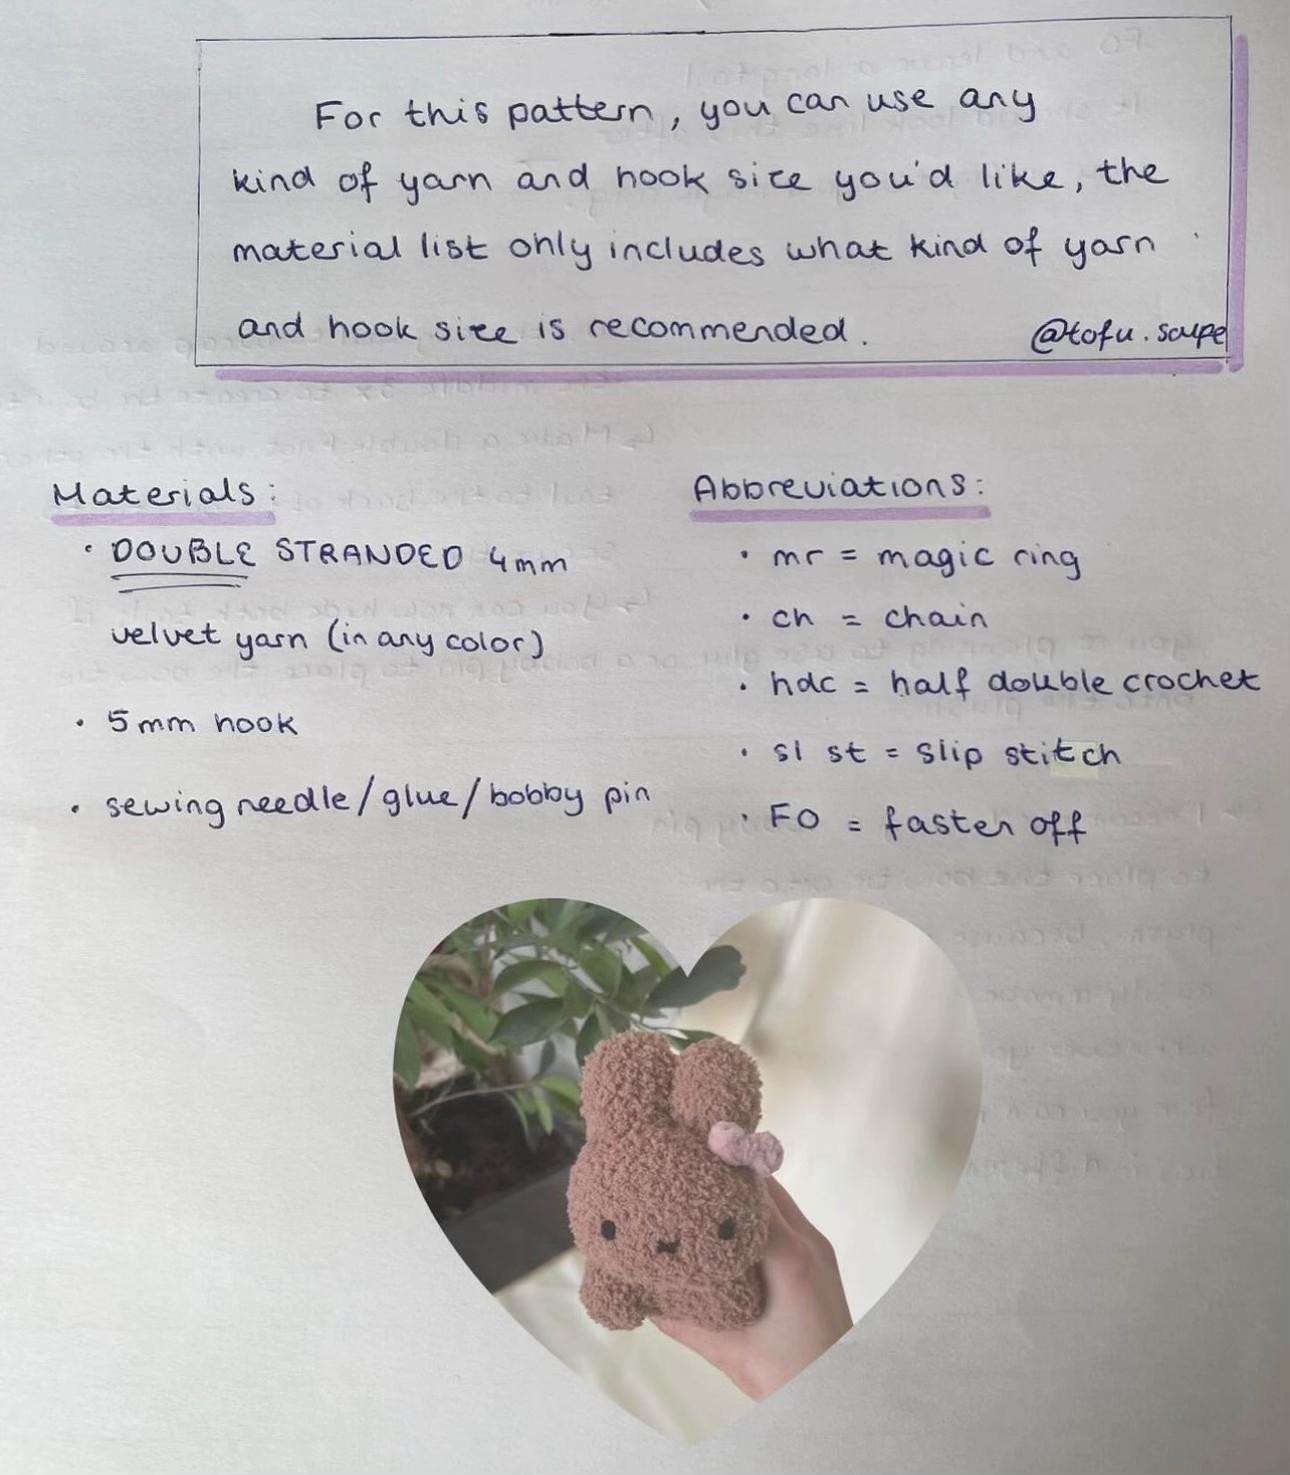 For this pattern, you can use any
kind of yarn and hook size you'd like, the
material list only includes what kind of yarn
and hook size is recommended.
@tofu.scupe
Materials:
• DOUBLE STRANDED 4mm
velvet yarn (in any color)
• 5mm hook
• sewing needle/glue/bobby pin
Abbreviations:
• mr = magic ring
• ch = chain
• hdc = half double crochet
• sl st = slip stitch
• FO = fasten off